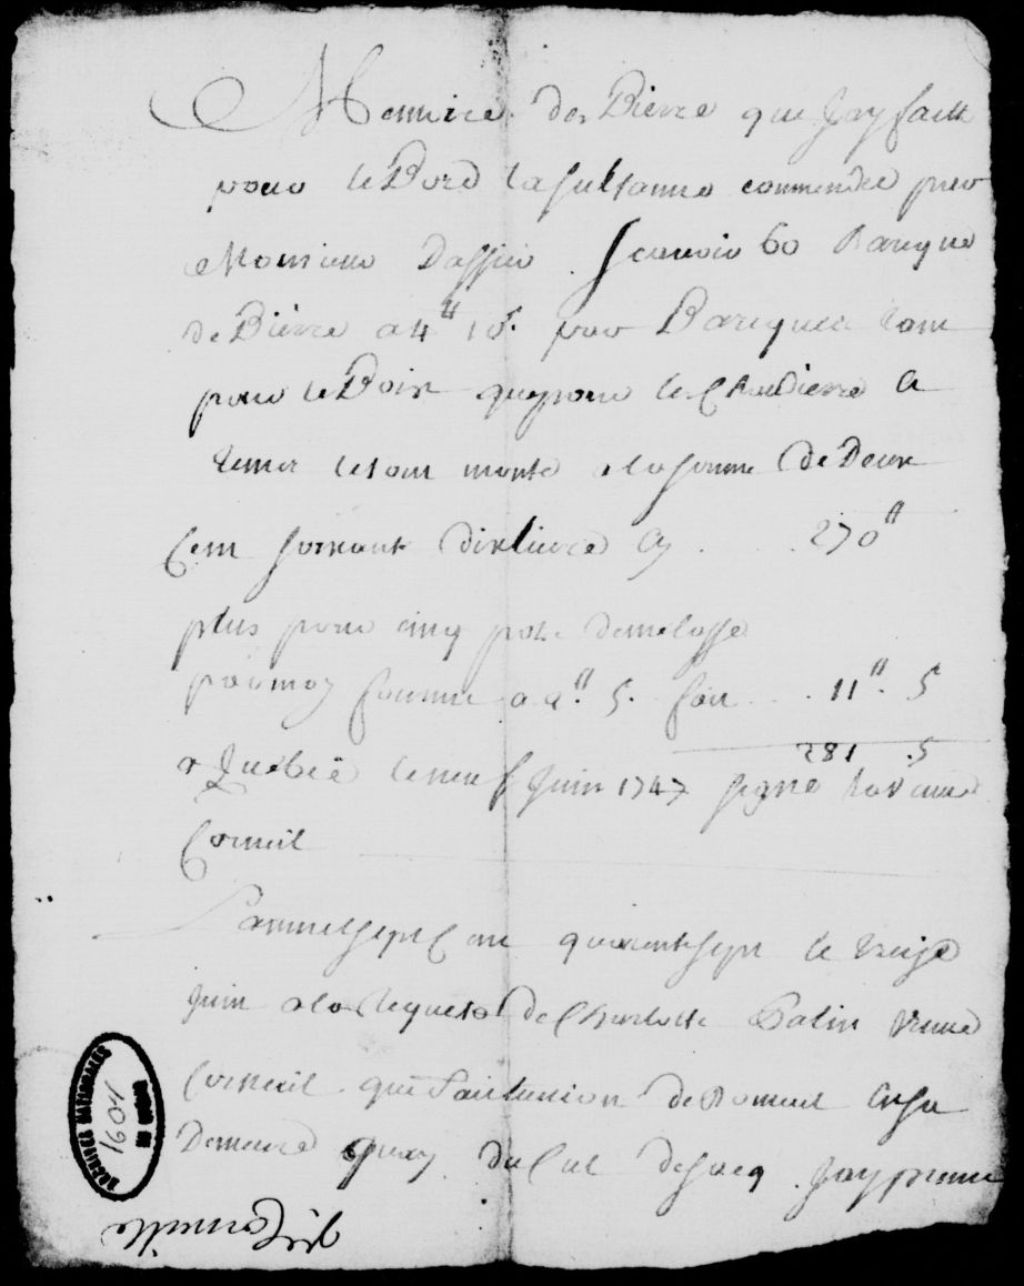 Memoire des Bierre que Jay faitt
pour le Bord la sultanne commendée par
Monsieur Dassier Scavoir 60 Barique
de Bierre a 4ᵗᵗ 10ˢ par Barique tant
pour le Bois que pour les Chaudierre a
le tout monte a la somme de Deux
Cent soixante dix livre Cy . . 270ᵗᵗ
plus pour cinq pots demelasse
par moy fournie a 2ᵗᵗ 5ˢ fait . . 11ᵗᵗ 5
281 . 5
a Quebec le neuf Juin 1747 signé la veuve
Corneil
Lan mil sept Cent quarente sept le treize
Juin a la Requete de Charlotte Patin veuve
Corneil que fait union de domicil en sa
Demeure quay du Cul de sacq Jay
Ve Corneille
ARCHIVES NATIONALES
1604